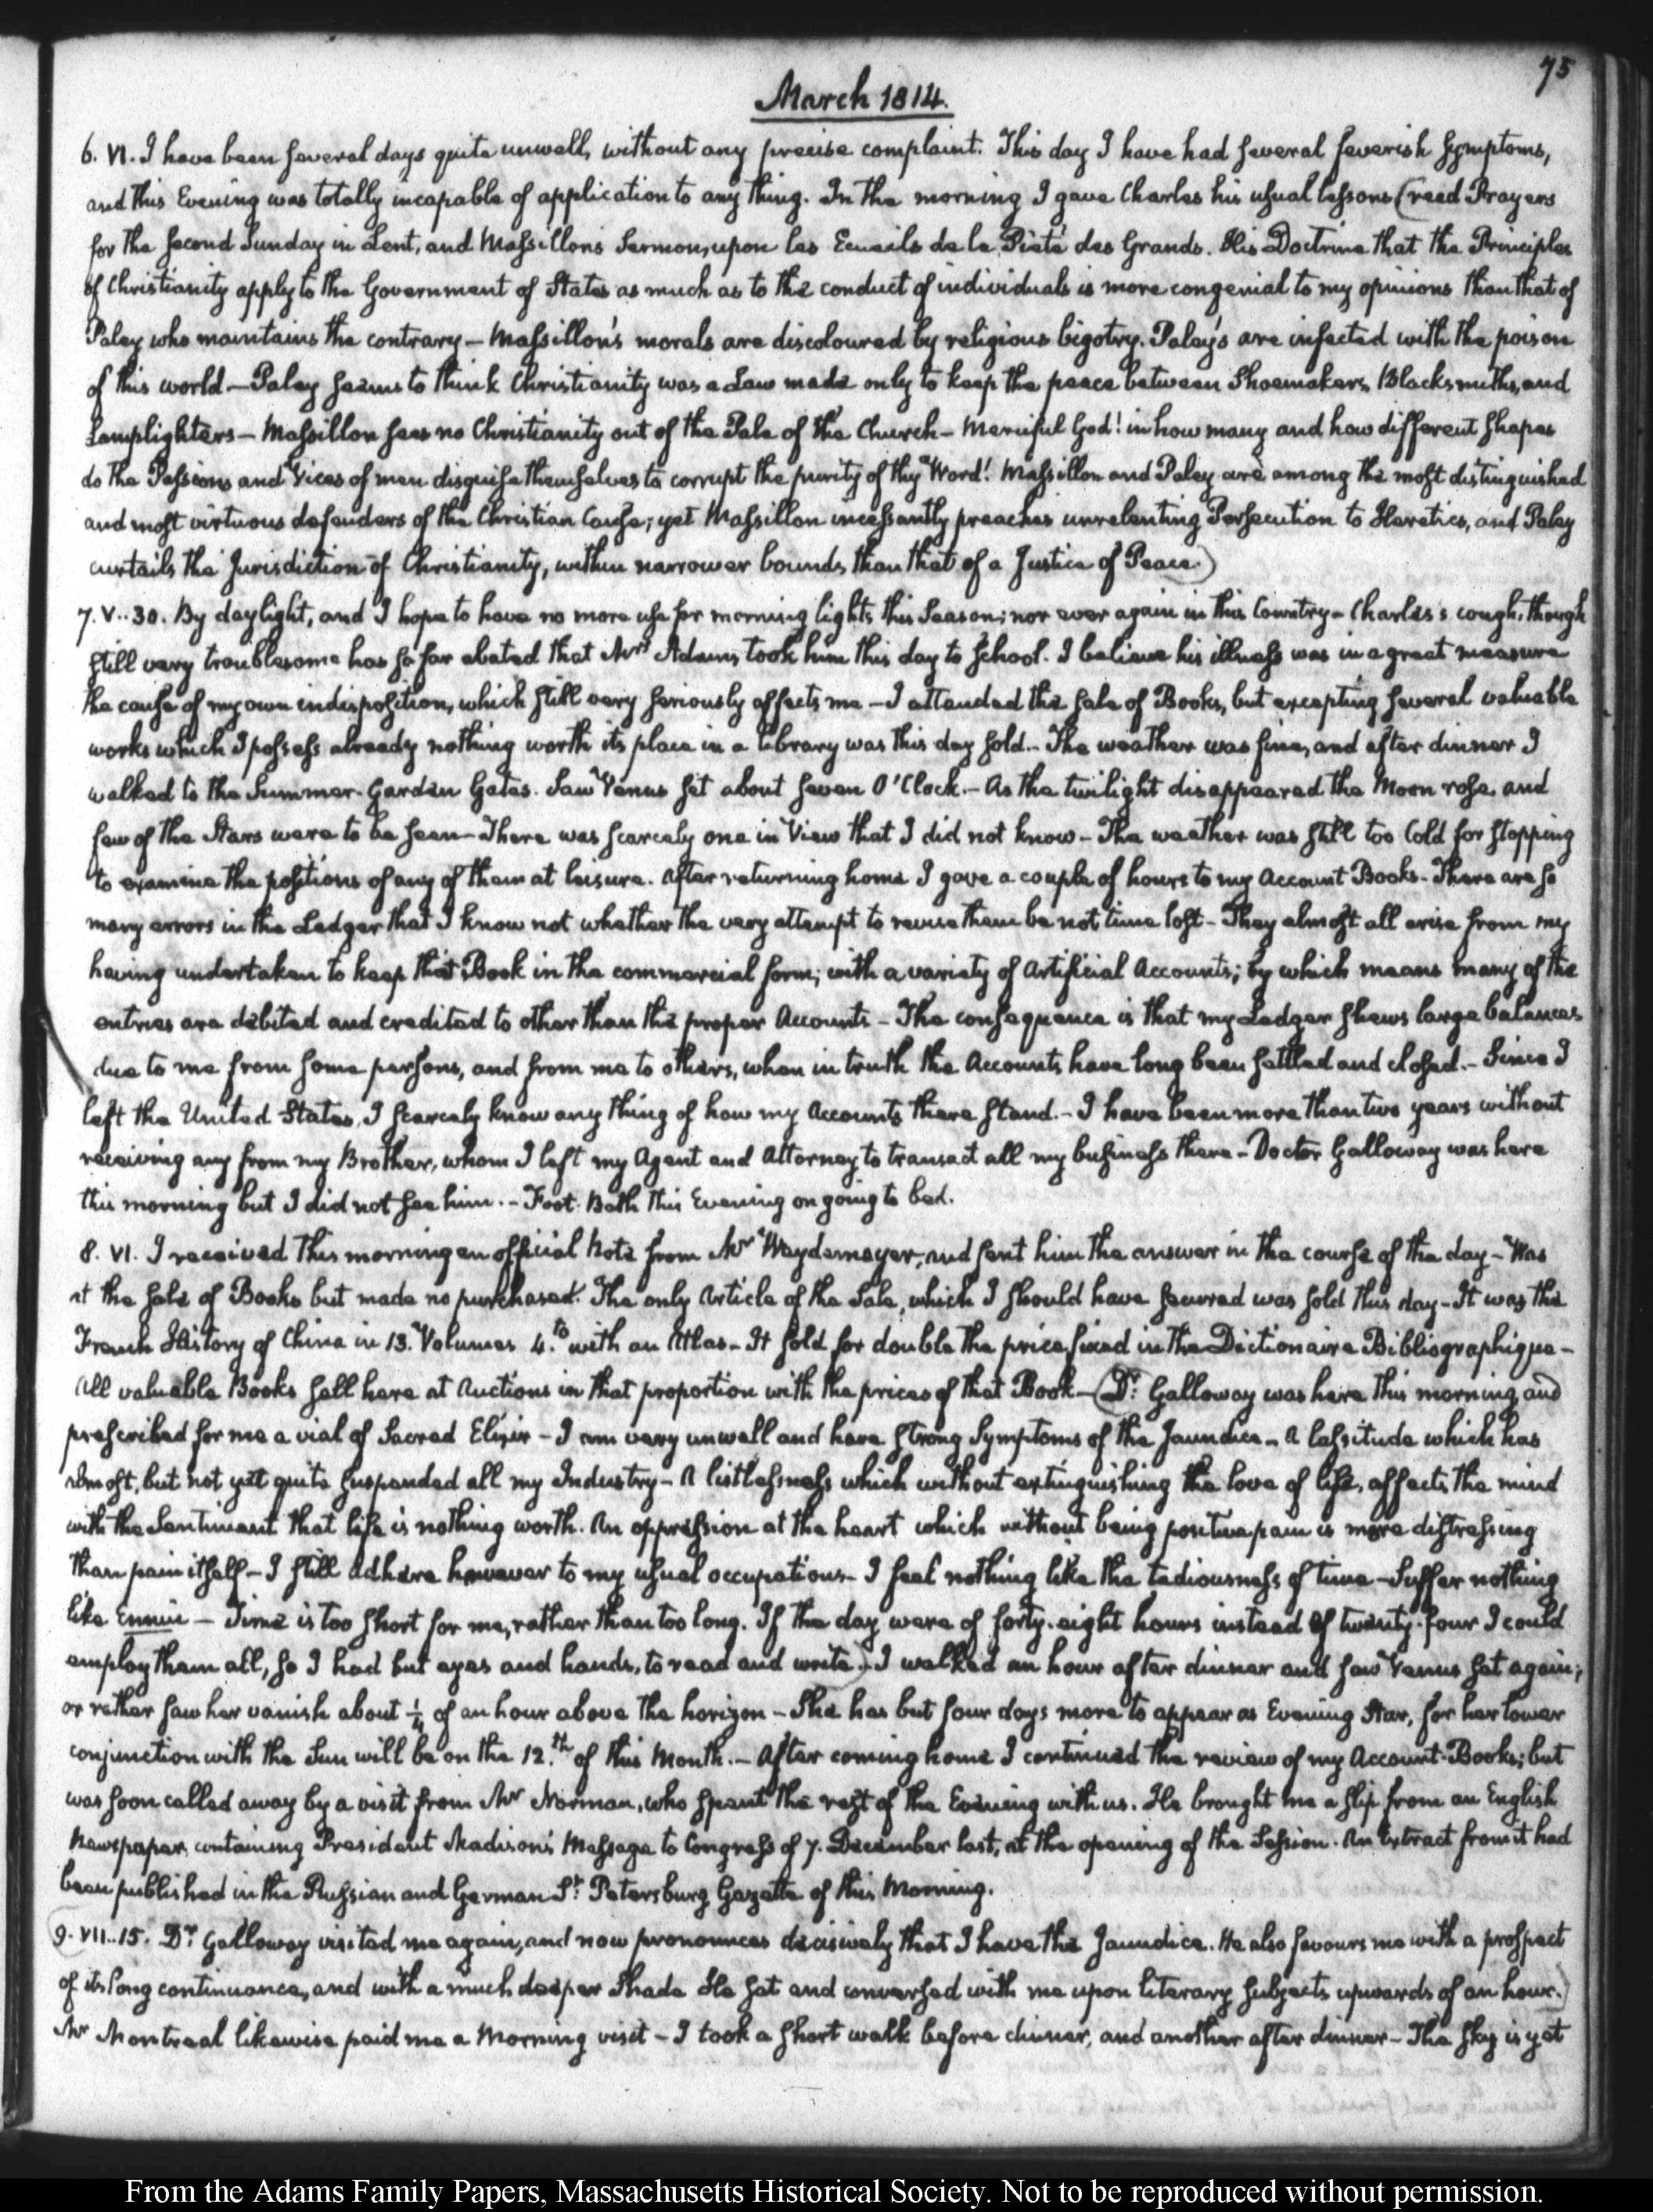 75
March 1814.
6. VI. I have been several days quite unwell, without any precise complaint. This day I have had several feverish symptoms,
and this Evening was totally incapable of application to any thing. In the morning I gave Charles his usual lessons (read Prayers
for the second Sunday in Lent, and Massillon's Sermon, upon les Ecueils de la Pieté des Grands. His Doctrine that the Principles
of Christianity apply to the Government of States as much as to the conduct of individuals is more congenial to my opinions than that of
Paley who maintains the contrary — Massillon's morals are discoloured by religious bigotry. Paley's are infected with the poison
of this world — Paley seems to think Christianity was a Law made only to keep the peace between Shoemakers, Blacksmiths, and
Lamplighters — Massillon sees no Christianity out of the Pale of the Church — Merciful God! in how many and how different shapes
do the Passions and Vices of men disguise themselves to corrupt the purity of thy Word! Massillon and Paley are among the most distinguished
and most virtuous defenders of the Christian Cause; yet Massillon incessantly preaches unrelenting Persecution to Heretics, and Paley
curtails the Jurisdiction of Christianity, within narrower bounds than that of a Justice of Peace.)
7. V..30. By daylight, and I hope to have no more use for morning lights this Season; nor ever again in this Country — Charles's cough, though
still very troublesome has so far abated that Mrs Adams took him this day to School. I believe his illness was in a great measure
the cause of my own indisposition, which still very seriously affects me — I attended the sale of Books, but excepting several valuable
works which I possess already nothing worth its place in a library was this day sold — The weather was fine, and after dinner I
walked to the Summer-Garden Gates. Saw Venus set about seven O'Clock. — As the twilight disappeared the Moon rose, and
few of the Stars were to be seen — There was scarcely one in View that I did not know — The weather was still too Cold for stopping
to examine the positions of any of them at leisure. After returning home I gave a couple of hours to my Account Books — There are so
many errors in the Ledger that I know not whether the very attempt to revise them be not time lost — They almost all arise from my
having undertaken to keep that Book in the commercial form, with a variety of Artificial Accounts; by which means many of the
entries are debited and credited to other than the proper Accounts — The consequence is that my Ledger shews large balances
due to me from some persons, and from me to others, when in truth the Accounts have long been settled and closed. — Since I
left the United States, I scarcely know any thing of how my Accounts there stand. — I have been more than two years without
receiving any from my Brother, whom I left my Agent and Attorney to transact all my business there — Doctor Galloway was here
this morning but I did not see him. — Foot-Bath this Evening on going to bed.
8. VI. I received this morning an official Note from Mr Weydemeyer, and sent him the answer in the course of the day — Was
at the sale of Books but made no purchased. The only Article of the Sale, which I should have secured was sold this day — It was the
French History of China in 13. Volumes 4.to with an Atlas — It sold for double the price fixed in the Dictionaire Bibliographique —
All valuable Books sell here at Auctions in that proportion with the prices of that Book — (Dr. Galloway was here this morning and
prescribed for me a vial of Sacred Elixir — I am very unwell and have strong Symptoms of the Jaundice — A lassitude which has
almost, but not yet quite suspended all my Industry — A listlessness which without extinguishing the love of life, affects the mind
with the Sentiment that life is nothing worth. An oppression at the heart which without being positive pain is more distressing
than pain itself — I still adhere however to my usual occupations — I feel nothing like the tediousness of time — Suffer nothing
like Ennui — Time is too short for me, rather than too long. If the day were of forty-eight hours instead of twenty-four I could
employ them all, so I had but eyes and hands, to read and write.) I walked an hour after dinner and saw Venus set again;
or rather saw her vanish about ¼ of an hour above the horizon — She has but four days more to appear as Evening Star, for her lower
conjunction with the Sun will be on the 12.th of this Month. — After coming home I continued the review of my Account-Books; but
was soon called away by a visit from Mr Norman, who spent the rest of the Evening with us. He brought me a slip from an English
Newspaper, containing President Madison's Message to Congress of 7. December last, at the opening of the Session. An Extract from it had
been published in the Russian and German St Petersburg Gazette of this Morning.
(9. VII..15. Dr Galloway visited me again, and now pronounces decisively that I have the Jaundice. He also favours me with a prospect
of its long continuance, and with a much deeper Shade. He sat and conversed with me upon literary subjects upwards of an hour.)
Mr Montreal likewise paid me a Morning visit — I took a short walk before dinner, and another after dinner — The sky is yet
From the Adams Family Papers, Massachusetts Historical Society. Not to be reproduced without permission.